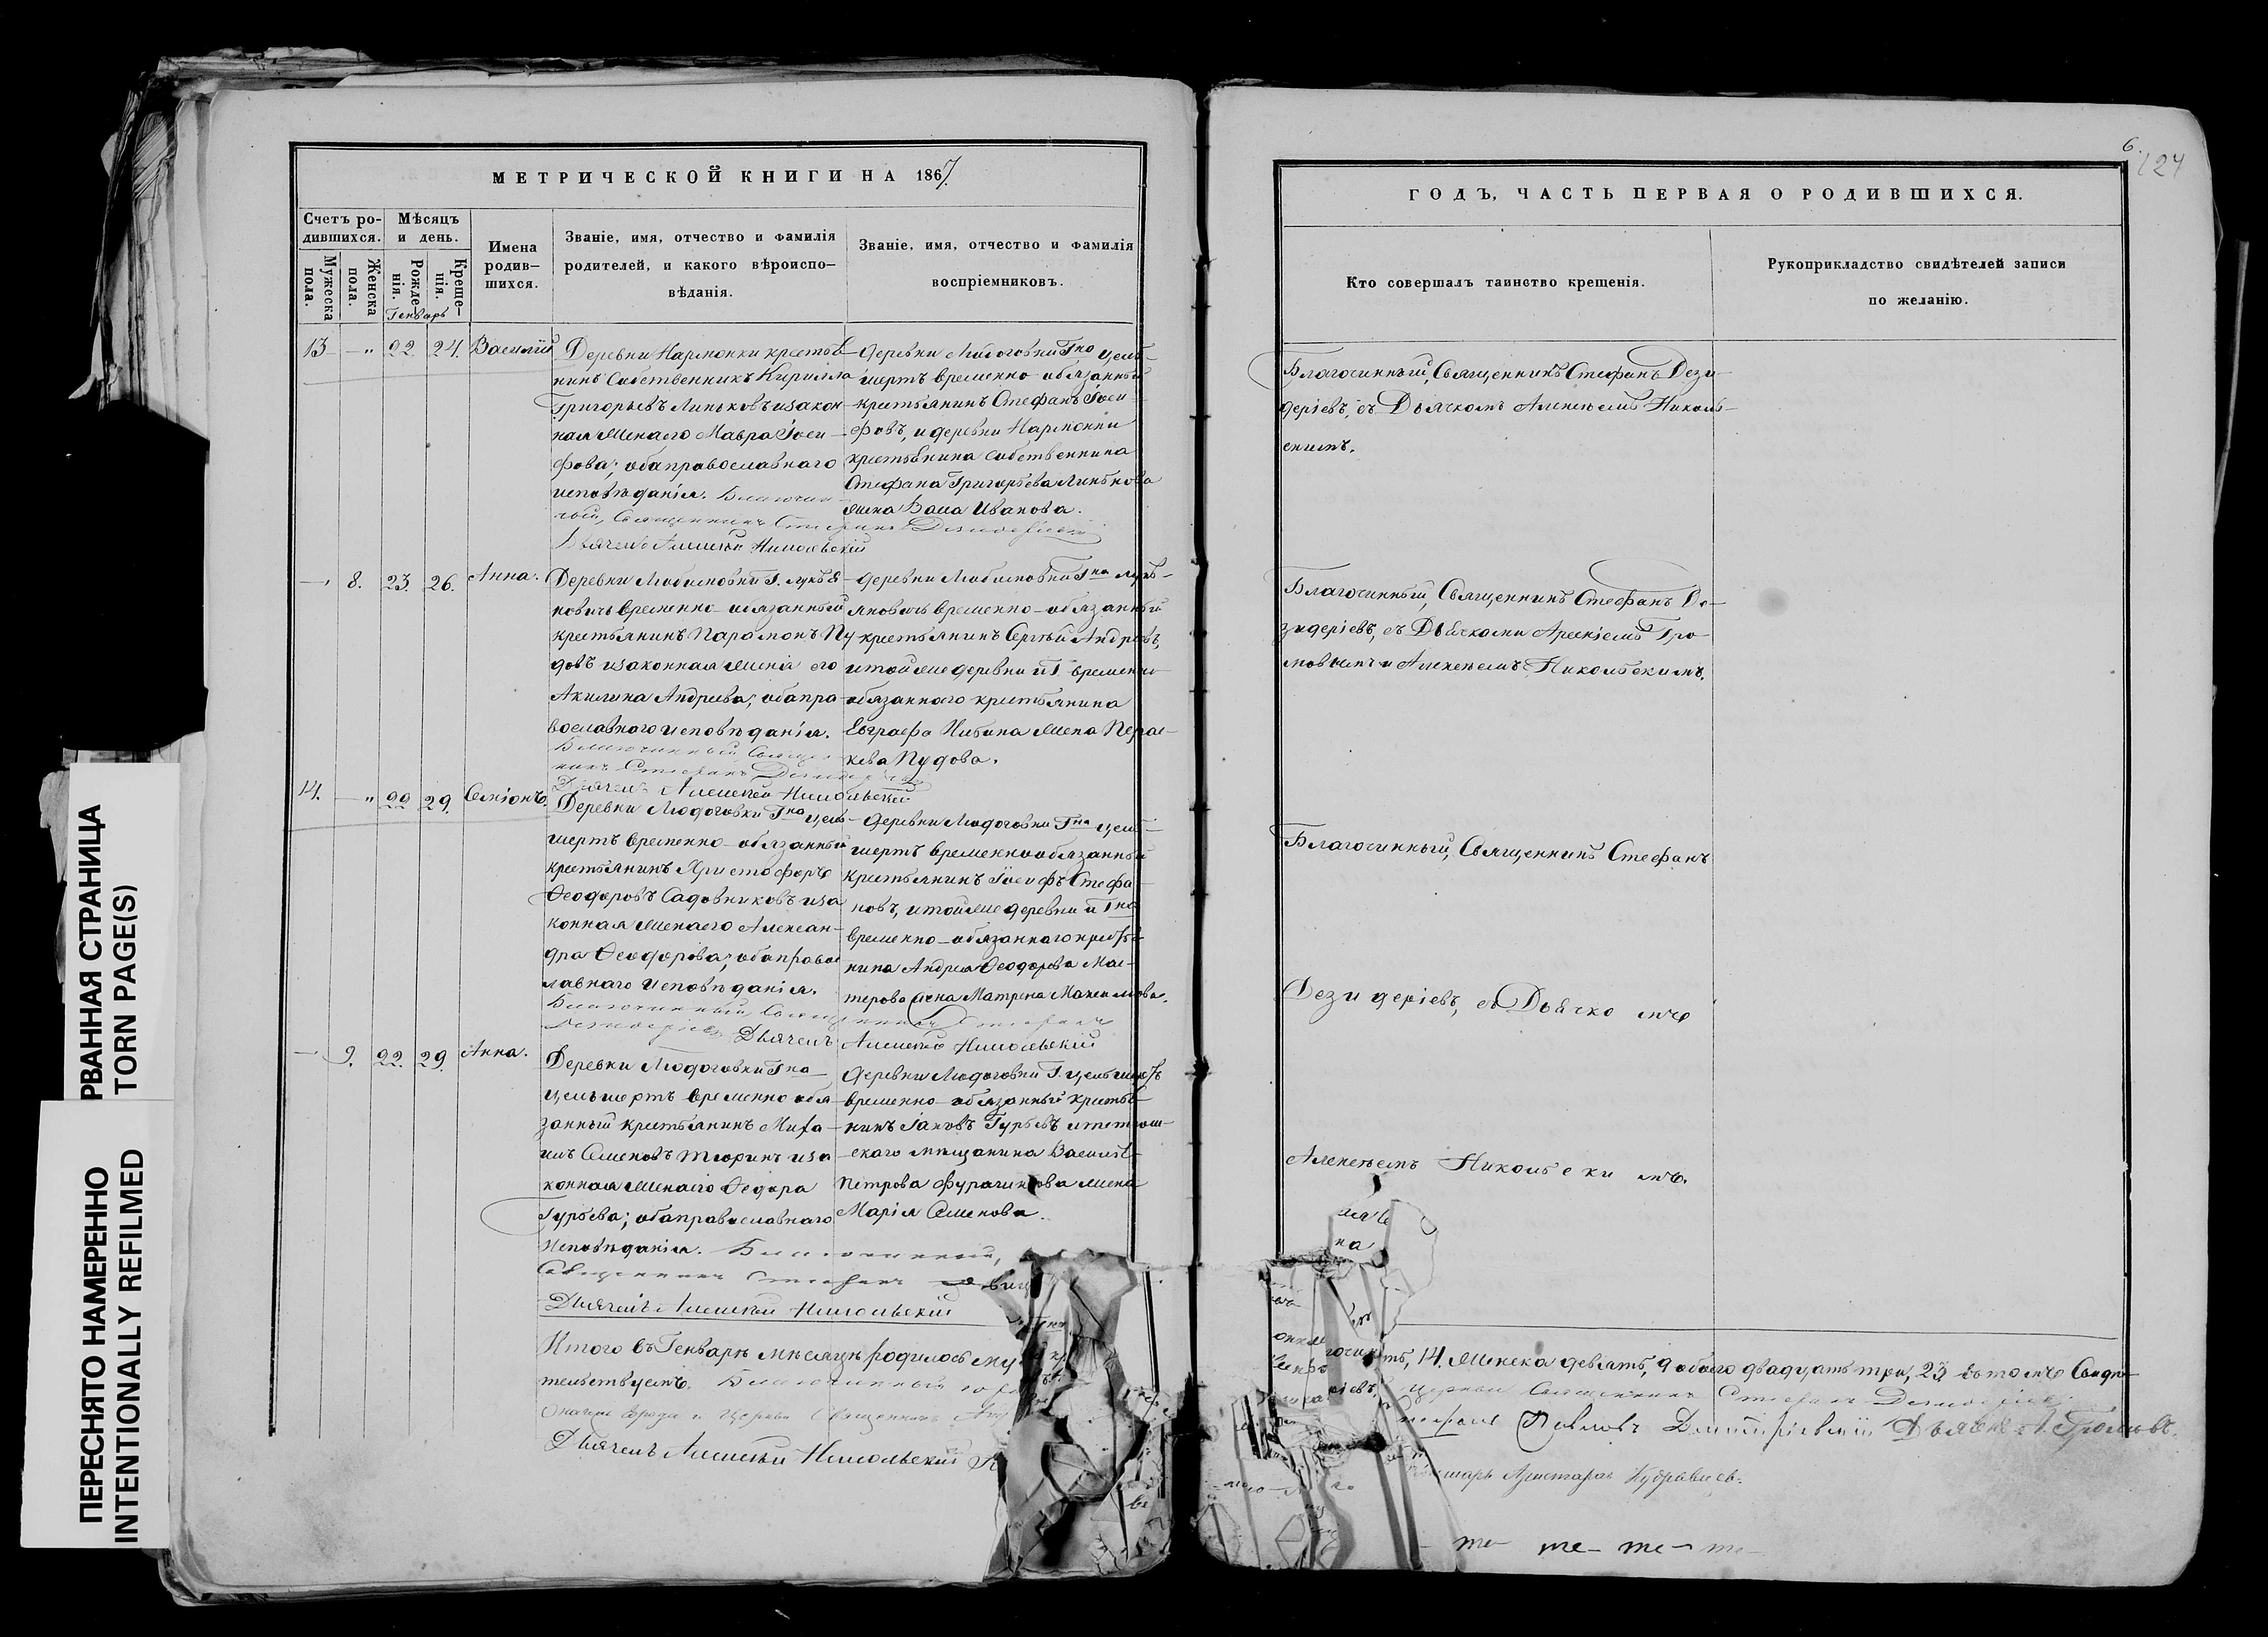 МЕТРИЧЕСКОЙ КНИГИ НА 1867.
Счетъ ро-
дившихся.
Мѣсяцъ
и день.
Мужеска
пола.
Женска
пола.
Рожде-
нія.
Креще-
нія.
Генварь
Имена
родив-
шихся.
Званіе, имя, отчество и фамилія
родителей, и какого вѣроиспо-
вѣданія.
Званіе, имя, отчество и фамилія
воспріемниковъ.
13 — " 22. 24. Василій
Деревни Нармонки крестья-
нинъ собственникъ Кирилла
Григорьевъ Линьковъ и закон-
ная жена его Мавра Іоси-
фова; оба православнаго
исповѣданія. Благочин-
ный, Священникъ Стефанъ Дезидеріевъ
Дьячекъ Алексѣй Никольскій
деревни Людоговки Гна Цель-
шертъ временно-обязанный
крестьянинъ Стефанъ Іоси-
фовъ, и деревни Нармонки
крестьянина собственника
Стефана Григорьева Линькова
жена Васа Иванова.
— " 8. 23. 26. Анна.
Деревни Любимовки Г. Лукья-
новичъ временно-обязанный
крестьянинъ Парамонъ Пу-
довъ и законная жена его
Акилина Андреева; оба пра-
вославнаго исповѣданія.
Благочинный, Священ-
никъ Стефанъ Дезидеріевъ
Дьячекъ Алексѣй Никольскій
деревни Любимовки Гна Лукь-
яновичъ временно-обязанный
крестьянинъ Сергѣй Андреевъ,
и той же деревни и Г. временно
обязаннаго крестьянина
Евграфа жена Парас-
кева Пудова.
14. — " 22 29. Семіонъ.
Деревни Людоговки Гна Цель-
шертъ временно-обязанный
крестьянинъ Христофоръ
Ѳеодоровъ Садовниковъ и за
конная жена его Алексан-
дра Ѳеодорова; оба правос
лавнаго исповѣданія.
Благочинный, Священникъ Стефанъ
Дезидеріевъ Дьячекъ Алексѣй Никольскій
деревни Людоговки Гна Цель-
шертъ временнообязанный
крестьянинъ Іосифъ Стефа-
новъ, и той же деревни и Гна
временно-обязаннаго крестья-
нина Андрея Ѳеодорова Мас-
терова жена Матрена Максимова.
— 9. 22. 29. Анна.
Деревни Людоговки Гна
Цельшертъ временно обя-
занный крестьянинъ Миха-
илъ Семеновъ Тюринъ и за
конная жена его Ѳедора
Гурьева; оба православнаго
исповѣданія. Благочинный,
Священникъ Стефанъ
Дьячекъ Алексѣй Никольскій
деревни Людоговки Г. Цельшертъ
временно-обязанный крестья-
нинъ Іаковъ Гурьевъ и тетюш-
скаго мѣщанина Василья
Петрова жена
Марія Семенова.
Итого въ Генварѣ мѣсяцѣ родилось му
тельствуемъ. Благочинный
Дьячекъ Алексѣй Никольскій
6.
124
ГОДЪ, ЧАСТЬ ПЕРВАЯ О РОДИВШИХСЯ.
Кто совершалъ таинство крещенія.
Рукоприкладство свидѣтелей записи
по желанію.
Благочинный, Священникъ Стефанъ Дези-
деріевъ, съ Дьячкомъ Алексѣемъ Николь-
скимъ.
Благочинный, Священникъ Стефанъ Де-
зидеріевъ, съ Дьячками Арсеніемъ Гро-
мовымъ и Алексѣемъ Никольскимъ.
Благочинный, Священникъ Стефанъ
Дезидеріевъ, съ Дьячкомъ
Алексѣемъ Никольскимъ.
14. женска девять, 9 обоего двадцать три, 23 въ томъ свидѣ-
церкви Священникъ Стефанъ Дезидеріевъ
Павловъ Димитріевскій Дьячекъ А. Громовъ.
Аристархъ Кудрявцевъ.
РВАННАЯ СТРАНИЦА
TORN PAGE(S)
ПЕРЕСНЯТО НАМЕРЕННО
INTENTIONALLY REFILMED